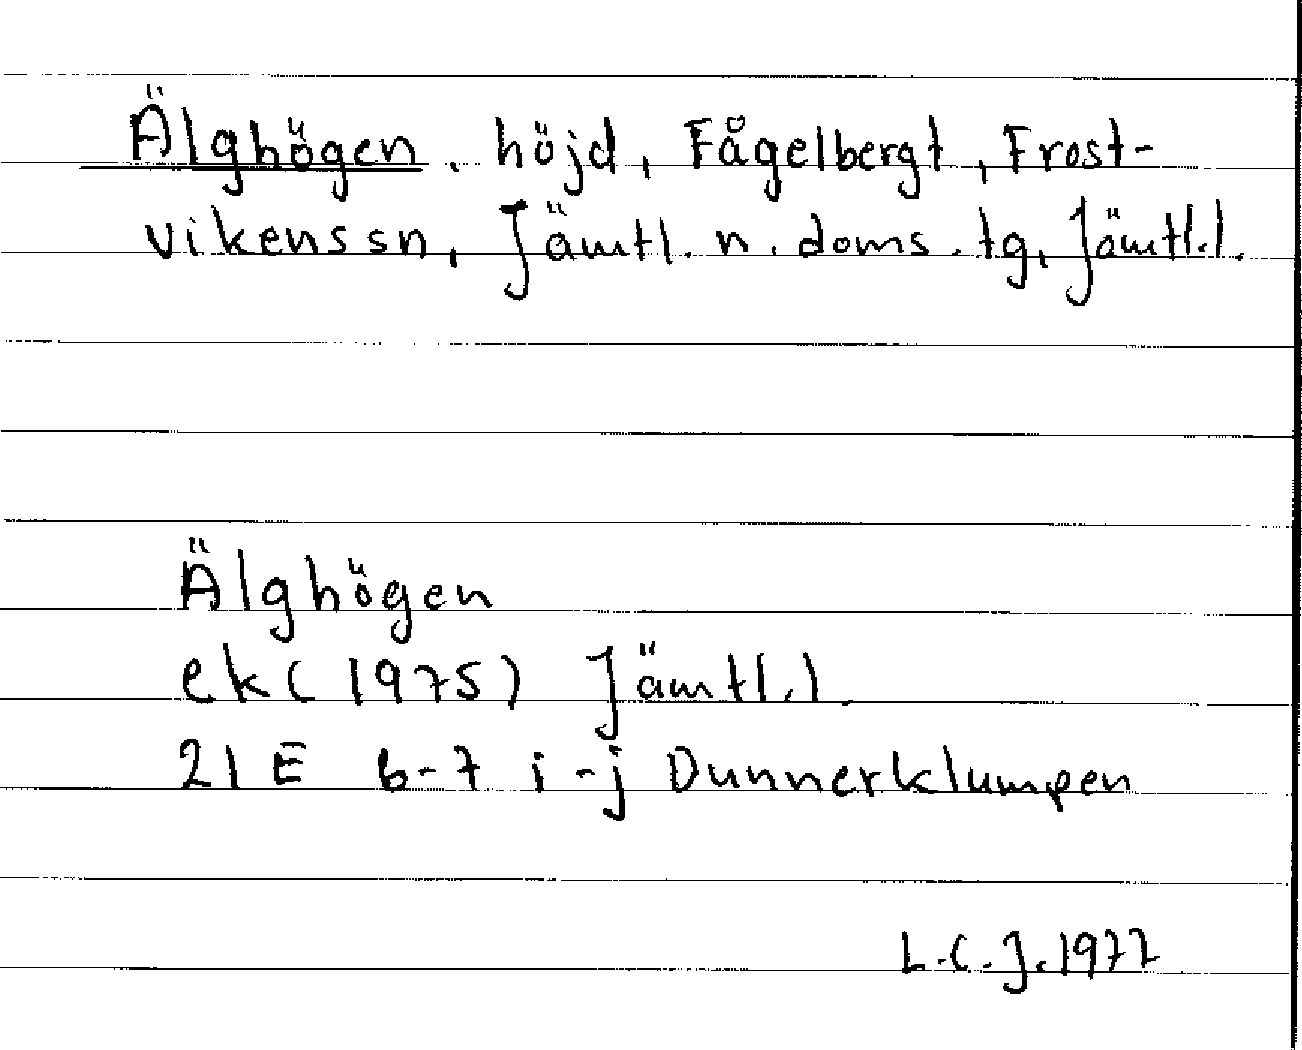 Älghögen. höjd, Fågelbergt, Frost-
vikens sn, Jämtl. n. doms. tg, Jämtl.l.
Älghögen
ek (1975) Jämtl.l.
21 E 6-7 i-j Dunnerklumpen
L.C.J. 1977